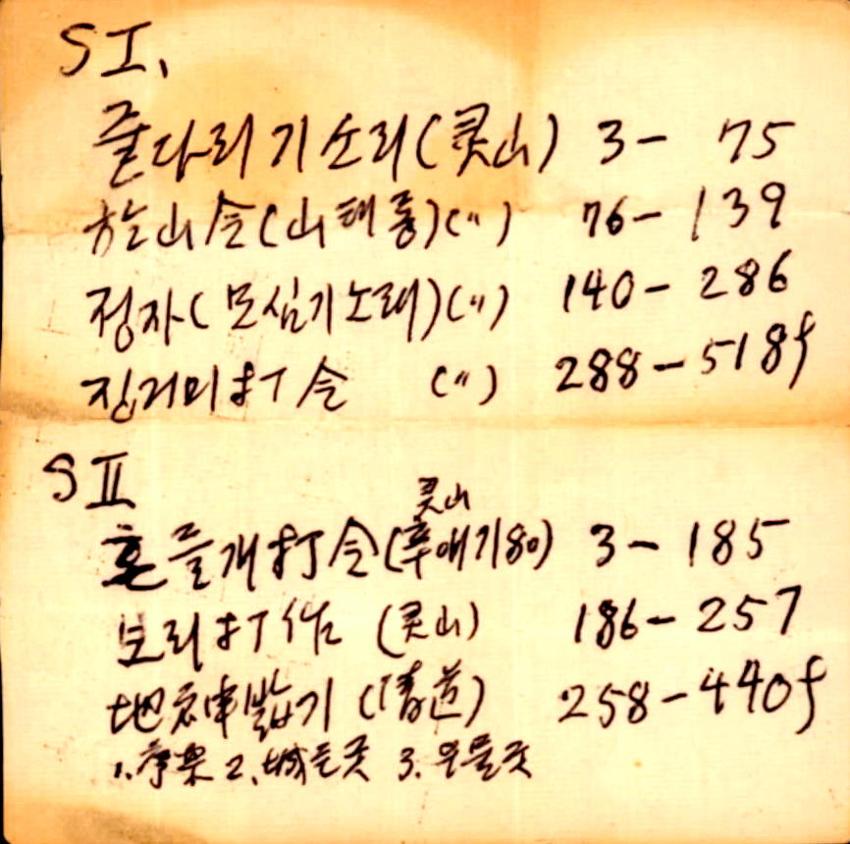 SI,
줄다리기소리(灵山) 3- 75
山令(山태롱)(〃) 76-139
정자(모심기노래)(〃) 140-286
징거미打令 (〃) 288-518f
SII
灵山
흔들개打令( 80) 3-185
보리打作 (灵山) 186-257
地神밟기 (淸道) 258-440f
1. 2. 굿 3. 우물굿